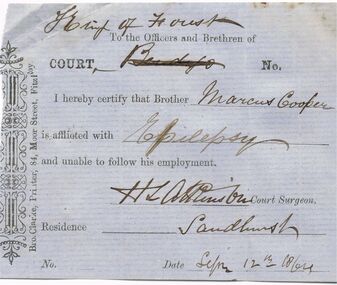 King of Forest
To the Officers and Brethren of
COURT, No.
I hereby certify that Brother Marcus Cooper
is afflicted with Epilepsy
and unable to follow his employment.
H L Atkinson Court Surgeon.
Residence Sandhurst
No. Date Sepr 12th 1864
Bro. Clarke, Printer, 84, Moor Street, Fitzroy.